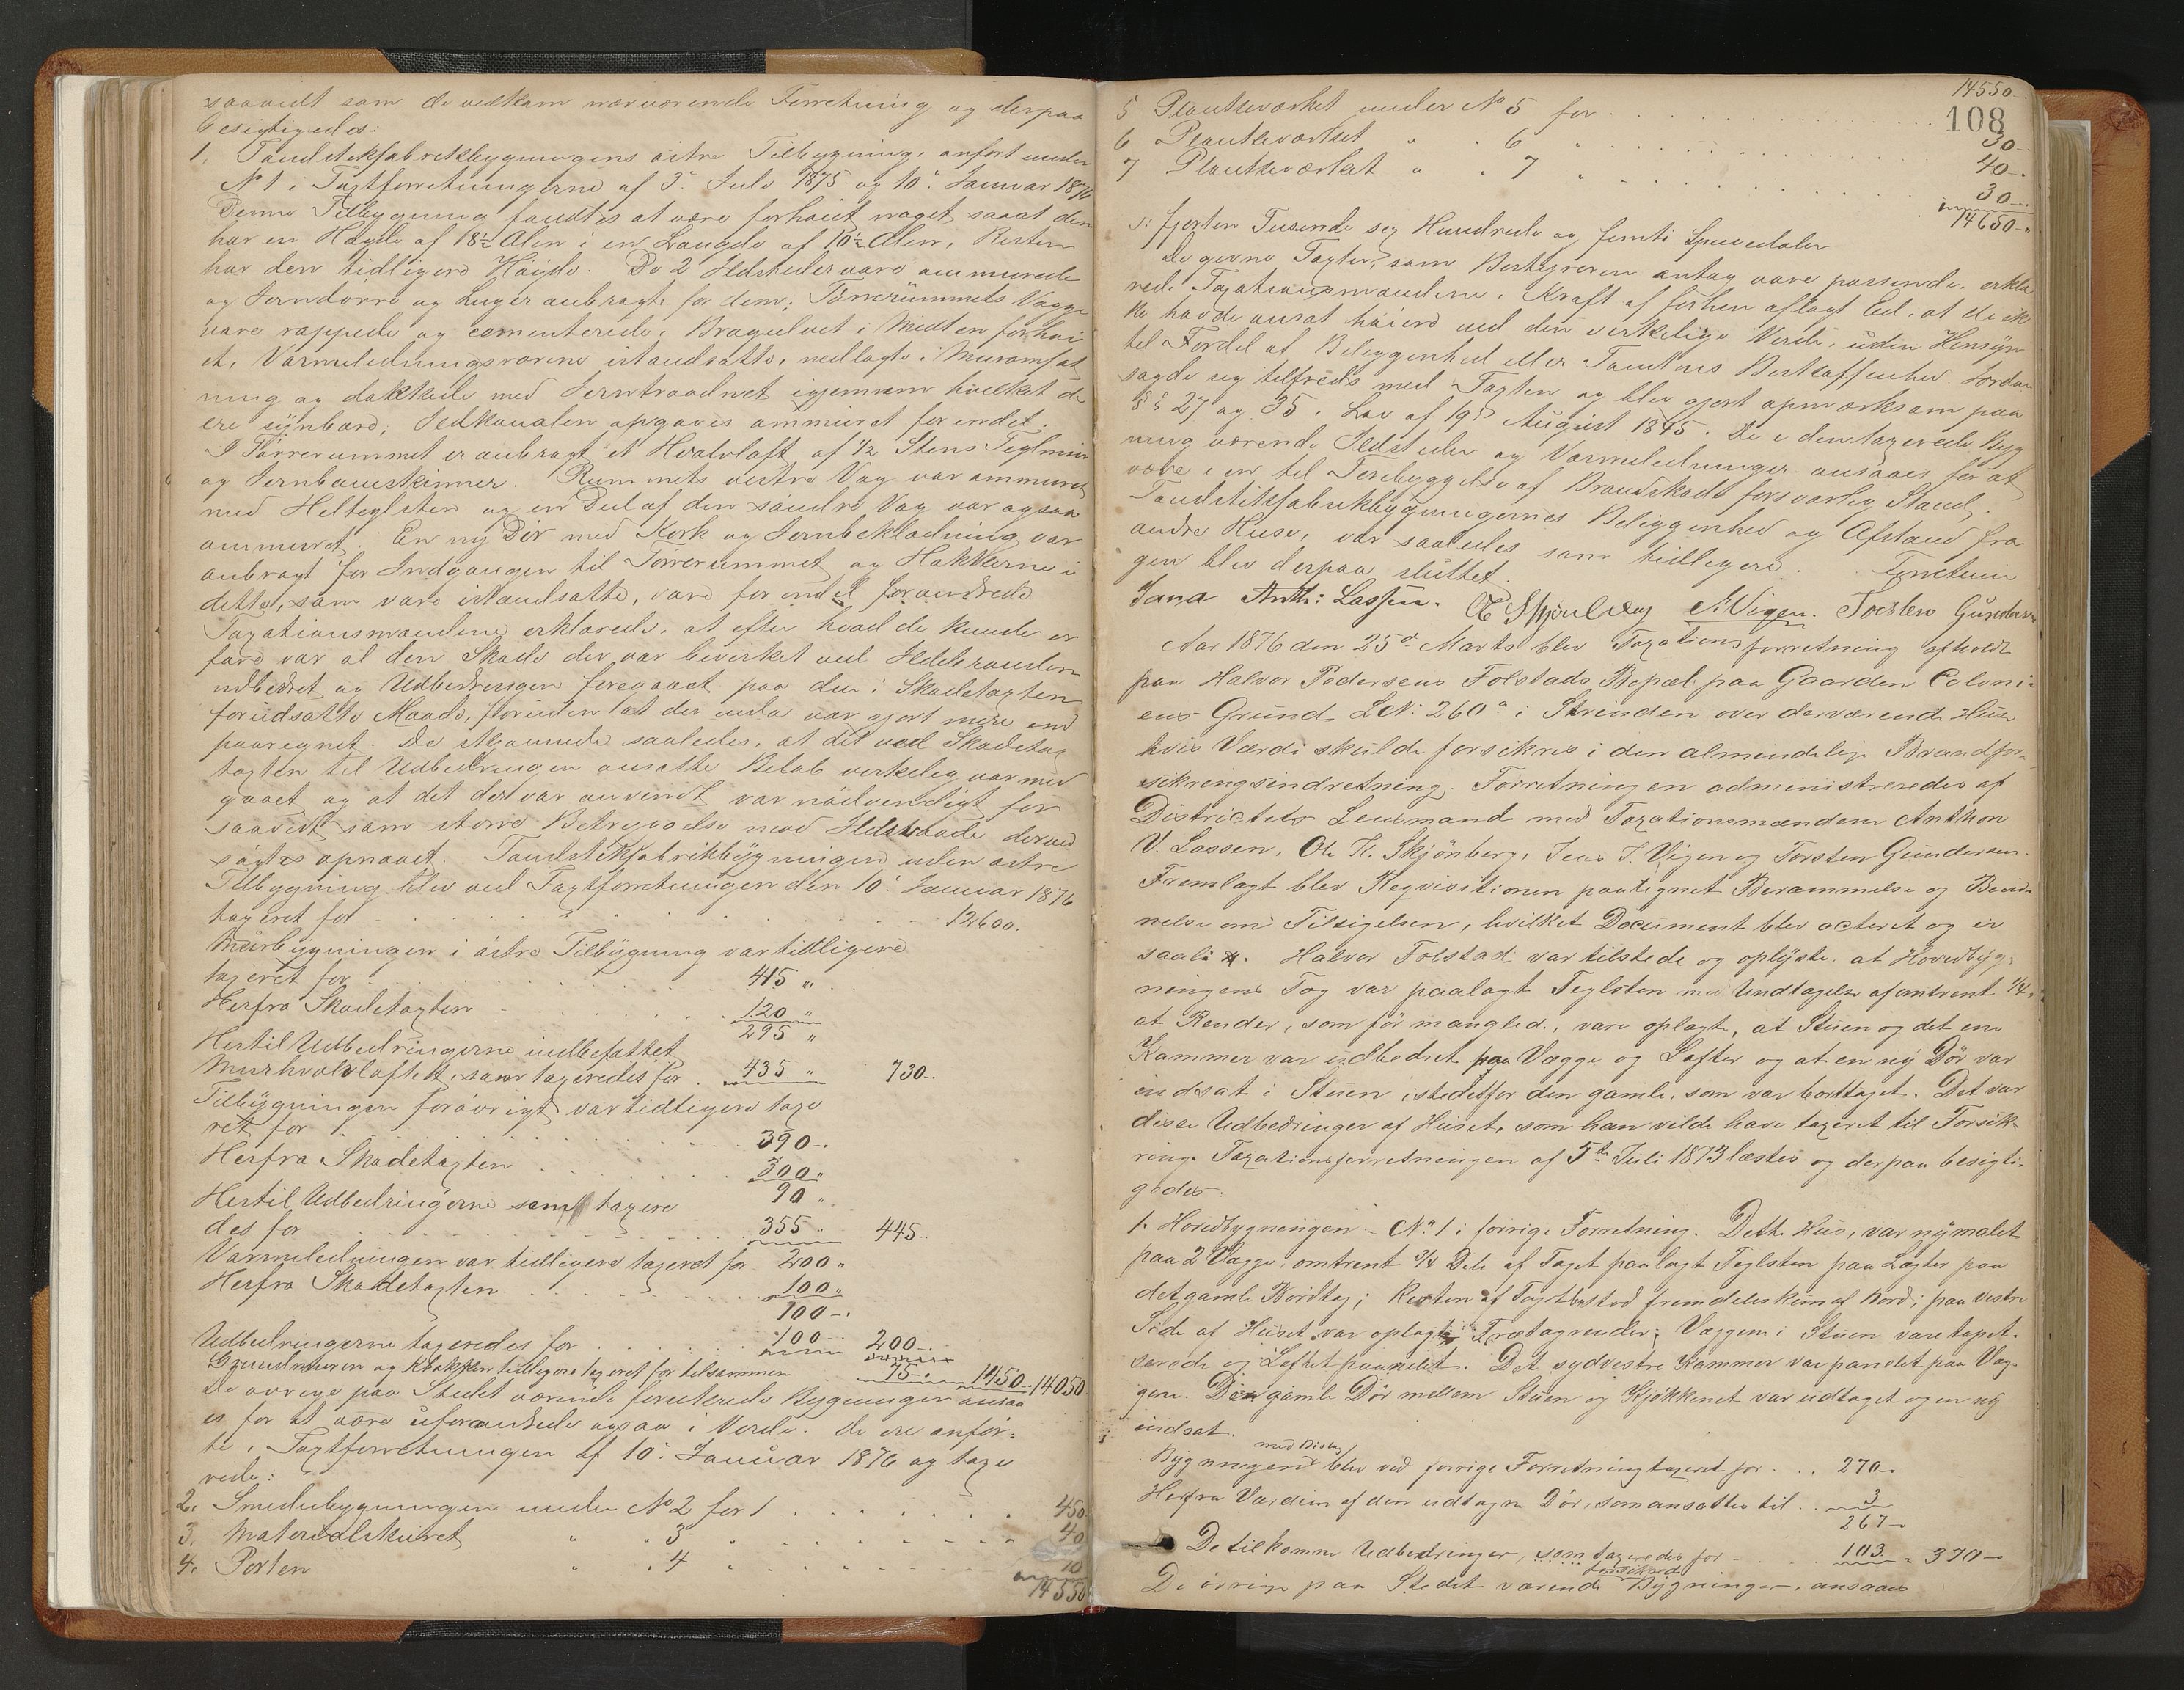 saavidt som de vedkom nærværende Forretning og derpaa
besigtigedes:
1. Tændstikfabrikbygningens østre Tilbygning, anført under
No 1 i Taxtforretningerne af 3. Juli 1875 og 10. Januar 1876
Denne Tilbygning fandtes at være forhøiet noget, saaat den
har en Høyde af 18 1/2 Alen i en Længde af 10 1/2 Alen, Resten
har den tidligere Høyde. De 2 Ildsteder vare ommurede
og Jerndørre og Luger anbragte for dem; Tørrerummets Vægge
vare rappede og cementerede, Bragulvet i Midten forhøi
et, Varmeledningsrørene istandsatte, nedlagte i Muromfat
ning og dækkede med Jerntraadnet igjennem hvilket de
ere synbare, Ildkanalen opgaves ommuret for endel.
I Tørrerummet er anbragt et Hvalvloft af 1/2 Stens Teglmur
og Jernbaneskinner. Rummets vestre Væg var ommuret
med Helteglsten og en Deel af den søndre Væg var ogsaa
ommuret. En ny Dør med Kork og Jernbeklædning var
anbragt for Indgangen til Tørrerummet og Hakkerne i
dette, som vare istandsatte, vare for endel forandrede
Taxationsmændene erklærede, at efter hvad de kunde er
fare var al den Skade der var bevirket ved Ildebranden
udbedret og Udbedringen foregaaet paa den i Skadetaxten
forudsatte Maade, foruden at der enda var gjort mere end
paaregnet. De skjønnede saaledes, at det ved Skadetax
taxten til Udbedringen ansatte Beløb virkelig var med
gaaet og at det der var anvendt var nødvendigt for
saavidt som større Betryggelse mod Ildsvaade derved
søgtes opnaaet. Tændstikfabrikbygningen uden østre
Tilbygning blev ved Taxtforretningen den 10. Januar 1876
taxeret for . . . . . . 12600.
Murbygningen i østre Tilbygning var tidligere
taxeret for . . . . 415 "
Herfra Skadetaxten . . . . 120 "
295 "
Hertil Udbedringerne indbefattet
Murhvalvloftet, som taxeredes for . 435 " 730..
Tilbygningen forøvrigt var tidligere taxe
ret for . . . . . 390-.
Herfra Skadetaxten . . . . 300 "
90 "
Hertil Udbedringerne som taxere
des for . . . . . 355 . 445..
Varmeledningen var tidligere taxeret for 200 "
Herfra Skadetaxten . . . . 100 "
100-.
Udbedringerne taxeredes for . . . 100-. 200-.
Grundmuren og Klokken tidligere taxeret for tilsammen 75-. 1450. 14050
De øvrige paa Stedet værende forsikrede Bygninger ansaa
es for at være uforandrede ogsaa i Værdi. De ere anfør=
te i Taxtforretningen af 10. Januar 1876 og taxe
rede:
2. Smedebygningen under No 2 for . . . . . 450
3. Materialskuret " " 3 " . . . . 40
4. Porten " " 4 " . . . . 10
14550
14550
108
5 Plankeværket under No 5 for . . . . . 30-.
6 Plankeværket " " 6 " . . . . . 40-.
7 Plankeværket " " 7 " . . . . . 30-.
14650-.
s: fjorten Tusende sex Hundrede og femti Speciedaler
De givne Taxter, som Bestyreren antog vare passende, erklæ
rede Taxationsmændene i Kraft af forhen aflagt Eed, at de ik
ke havde ansat høiere end den virkelige Værdi, uden Hensyn
til Fordel af Beliggenhed eller Tomtens Beskaffenhed. Jordan
sagde sig tilfreds med Taxten og blev gjort opmærksom paa
§§ 27 og 35 i Lov af 19de August 1845. De i den taxerede Byg
ning værende Ildsteder og Varmeledninger ansaaes for at
være i en til Forebyggelse af Brandskade forsvarlig Stand.
Tændstikfabrikbygningernes Beliggenhed og Afstand fra
andre Huse, var saaledes som tidligere. Forretnin
gen blev derpaa sluttet.
Jana Anth: Lassen. O H Skjønberg J. Vigen. Torsten Gundersen
Aar 1876 den 25de Marts blev Taxationsforretning afholdt
paa Halvor Pedersens Folstads Bopæl paa Gaarden Coloni-
ens Grund LNo 260a i Strinden over derværende Huse
hvis Værdi skulde forsikres i den almindelige Brandfor-
sikringsindretning. Forretningen administreredes af
Districtets Lensmand med Taxationsmændene Anthon
V. Lassen, Ole H. Skjönberg, Jens J. Vigen og Torsten Gundersen.
Fremlagt blev Reqvisitionen paategnet Berammelse og Bevid-
nelse om Tilsigelsen, hvilket Document blev acteret og er
saal: . Halvor Folstad var tilstede og oplyste, at Hovedbyg-
ningens Tag var paalagt Teglsten med Undtagelse af omtrent 1/4.
at Render, som för manglede, vare oplagte, at Stuen og det ene
Kammer var udbedret paa Vægge og Lofter og at en ny Dør var
indsat i Stuen istedetfor den gamle, som var borttaget. Det var
disse Udbedringer af Huset, som han vilde have taxeret til Forsik-
ring. Taxationsforretningen af 5te Juli 1873 læstes og derpaa besigti-
gedes:
1. Hovedbygningen - No 1 i forrige Forretning. Dette Huus, var nymalet
paa 2 Vægge, omtrent 3/4 Dele af Taget paalagt Teglsten paa Lægter paa
det gamle Bordtag; Resten af Taget bestod fremdeles kun af Bord; paa vestre
Side af Huset var oplagte Trætagrender; Væggene i Stuen vare tapet-
serede og Loftet paanelet. Det sydvestre Kammer var panelet paa Væg-
gene. Den gamle Dör mellem Stuen og Kjökkenet var udtaget og en ny
indsat.
med Bislag
Bygningen blev ved forrige Forretning taxeret for . . . 270-.
Herfra Værdien af den udtagne Dör, som ansattes til . . 3
267-.
De tilkomne Udbedringer, som taxeredes for . . . 103 - 370-.
forsikrede
De övrige paa Stedet værende Bygninger, ansaaes